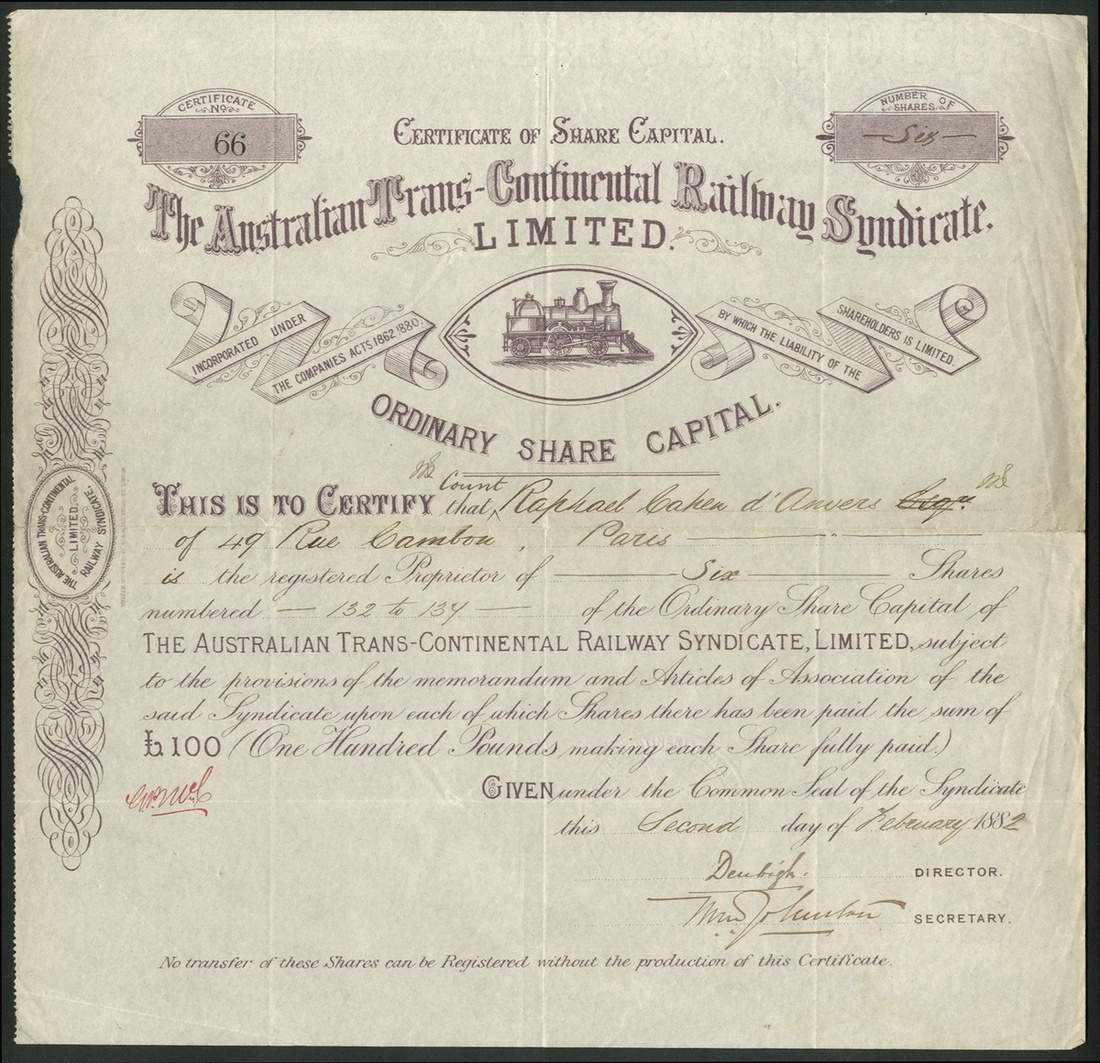 CERTIFICATE No. 66
NUMBER OF SHARES Six
CERTIFICATE OF SHARE CAPITAL.
The Australian Trans-Continental Railway Syndicate.
LIMITED.
INCORPORATED UNDER
THE COMPANIES ACTS 1862 1880.
BY WHICH THE LIABILITY OF THE
SHAREHOLDERS IS LIMITED.
ORDINARY SHARE CAPITAL.
THE AUSTRALIAN TRANS-CONTINENTAL
LIMITED.
RAILWAY SYNDICATE.
Count
THIS IS TO CERTIFY that Raphael Cahen d'Anvers Esqre
of 49 Rue Cambon, Paris
is the registered Proprietor of Six Shares
numbered 132 to 137 of the Ordinary Share Capital of
THE AUSTRALIAN TRANS-CONTINENTAL RAILWAY SYNDICATE, LIMITED, subject
to the provisions of the memorandum and Articles of Association of the
said Syndicate upon each of which Shares there has been paid the sum of
£100 (One Hundred Pounds, making each Share fully paid.)
GIVEN under the Common Seal of the Syndicate
this Second day of February 1882
Denbigh. DIRECTOR.
Wm Johnston SECRETARY.
No transfer of these Shares can be Registered without the production of this Certificate.